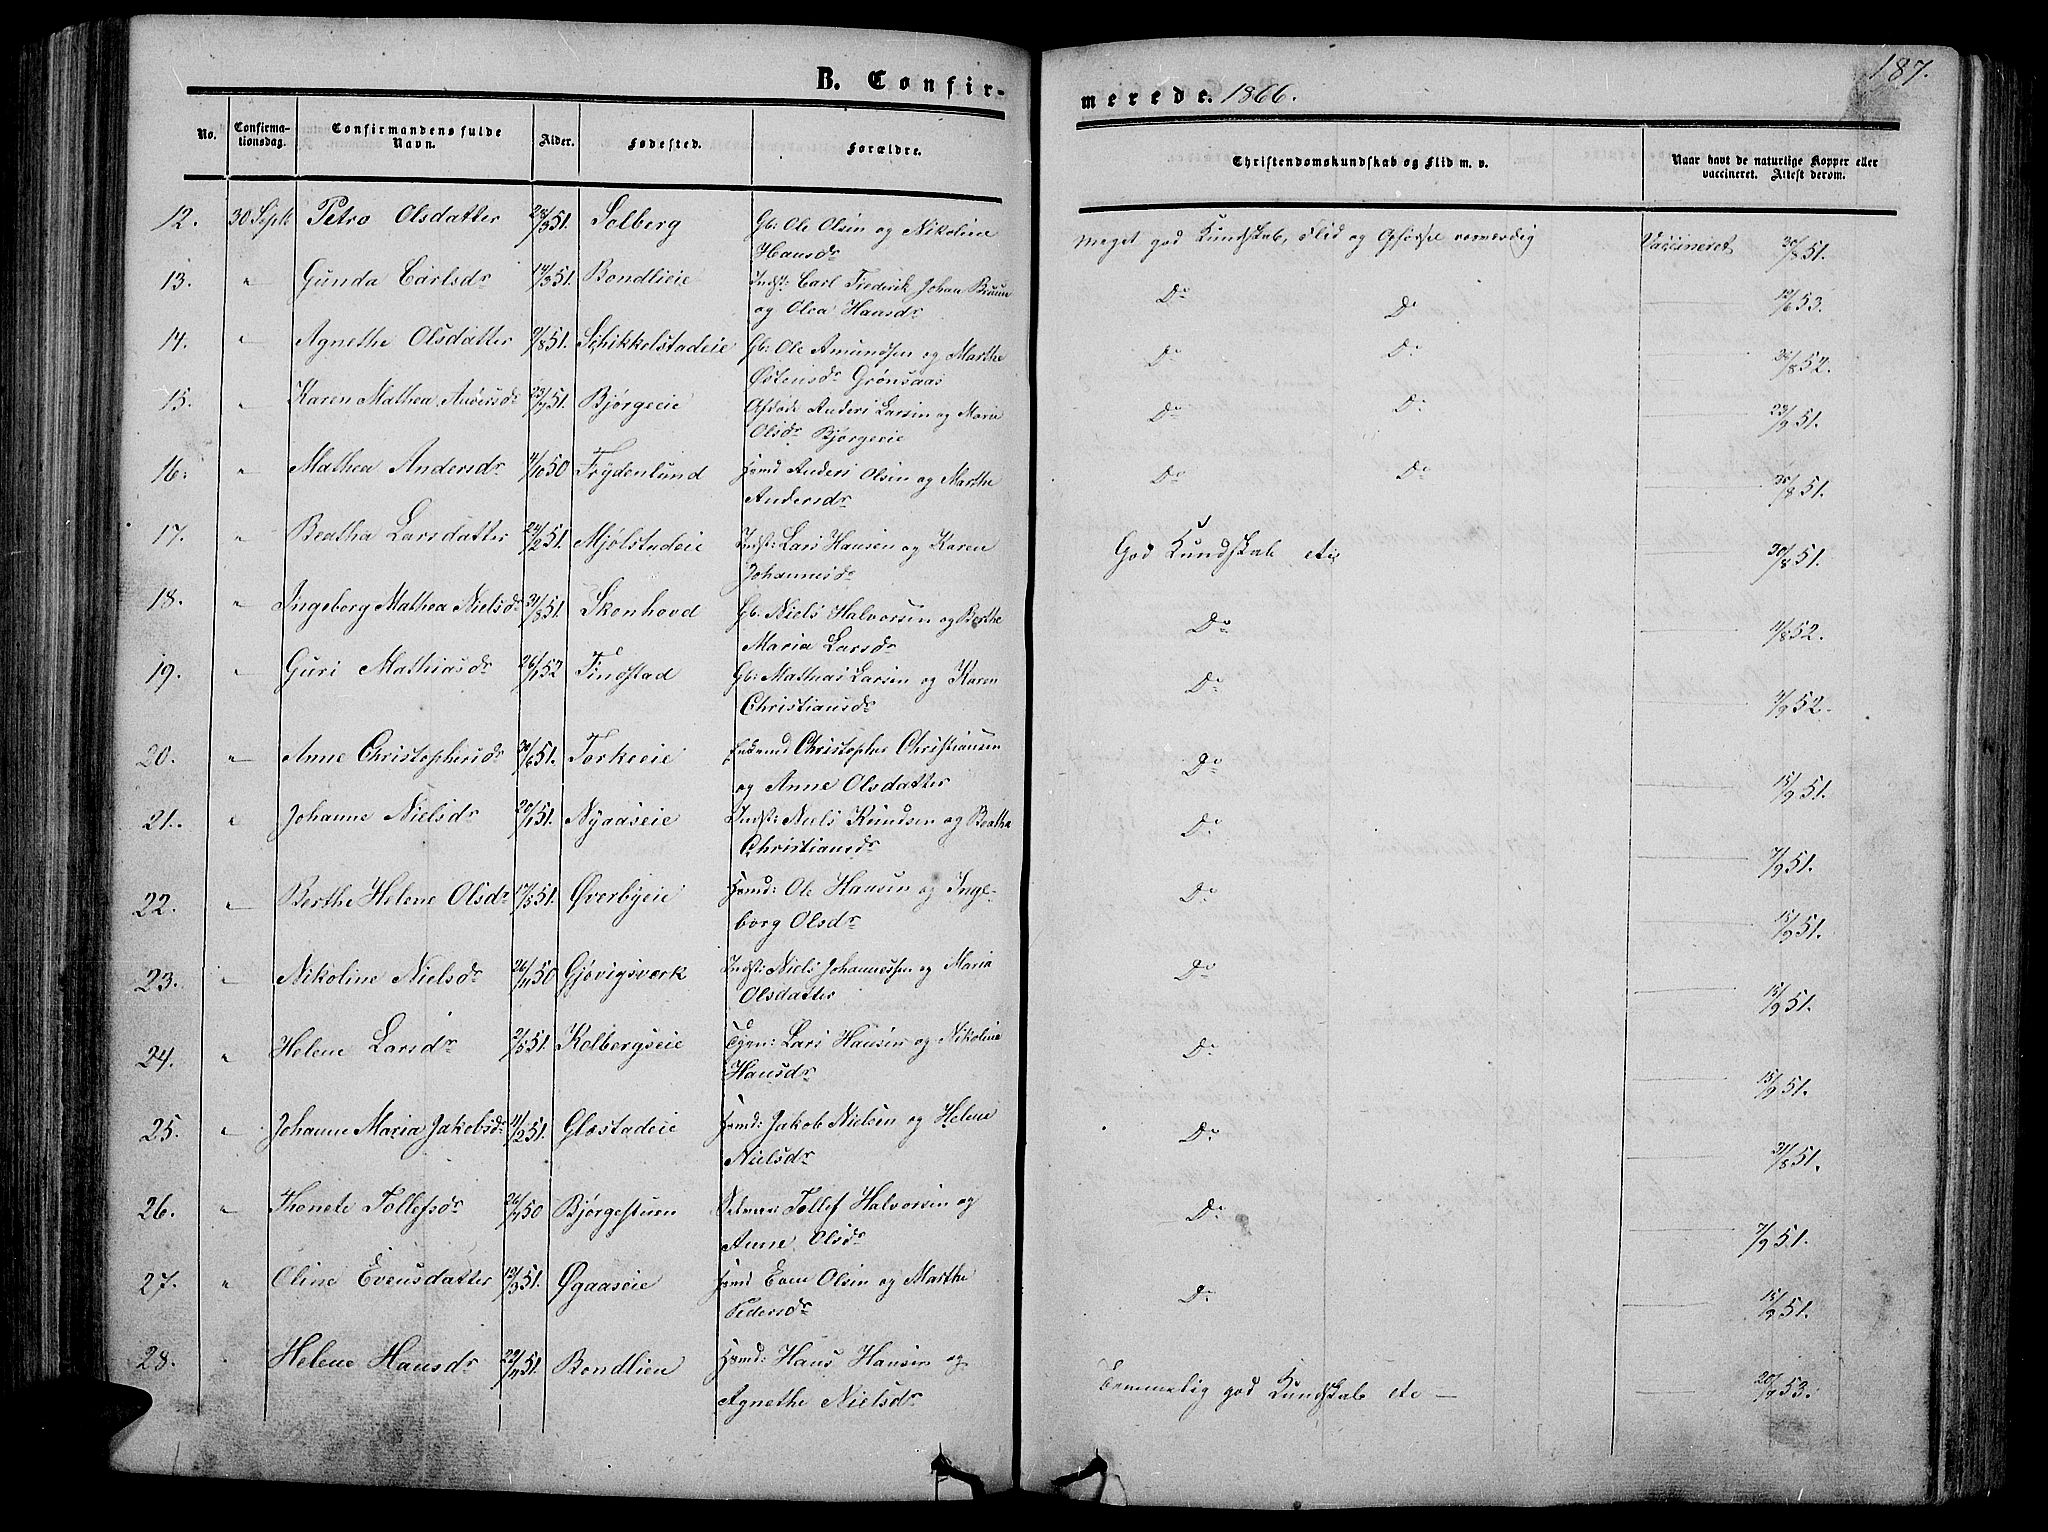 187.
B. Confir-
merede. 1866.
No.
Confirma-
tionsdag.
Confirmandens fulde
Navn.
Alder.
Fødested.
Forældre.
Christendomskundskab og Flid m. v.
Naar havt de naturlige Kopper eller
vaccineret. Attest derom.
12. 30 Sept Petra Olsdatter 28/3 51. Solberg Gb: Ole Olsen og Nikoline
Hansdr
Meget god Kundskab, Flid og Opførsel Vaccineret 30/8 51.
13. " Gunda Carlsdr 14/3 51. Bondlieie Indst: Carl Frederik Johan Bruun
og Olea Hansdr
Do Do 12/6 53.
14. " Agnethe Olsdatter 9/8 51. Schikkelstadeie Gb: Ole Amundsen og Marthe
Østensdr Grønsaas
Do Do 30/8 52.
15. " Karen Mathea Andersdr 23/7 51. Bjørgeeie Afdøde Anders Larsen og Maria
Olsdr Bjørgeeie
Do Do 23/9 51.
16. " Mathea Andersdr 4/10 50 Frydenlund Hmd Anders Olsen og Marthe
Andersdr
Do Do 30/8 51.
17. " Beatha Larsdatter 24/2 51. Mjølstadeie Indst: Lars Hansen og Karen
Johannesdr
God Kundskab etc 30/8 51.
18. " Ingeborg Mathea Nielsdr 31/8 51. Skonhovd Gb: Niels Halvorsen og Berthe
Maria Larsdr
Do 11/8 52.
19. " Guri Mathiasdr 26/1 52 Findstad Gb: Mathias Larsen og Karen
Christiansdr
Do 7/9 52.
20. " Anne Christophersdr 30/6 51. Torkeeie Christopher Christiansen
og Anne Olsdatter
Do 15/9 51.
21. " Johanne Nielsdr 20/1 51. Nyaaseie Indst: Niels Knudsen og Beatha
Christiansdr
Do 7/9 51.
22. " Berthe Helene Olsdr 17/5 51. Øverbyeie Hmd: Ole Hansen og Inge-
borg Olsdr
Do 15/9 51.
23. " Nikoline Nielsdr 26/11 50 Gjøvigsverk Indst: Niels Johannessen og Maria
Olsdatter
Do 15/9 51.
24. " Helene Larsdr 2/5 51. Kolbergseie Lars Hansen og Nikoline
Hansdr
Do 15/9 51.
25. " Johanne Maria Jakobsdr 11/2 51. Gløstadeie Hmd: Jakob Nielsen og Helene
Nielsdr
Do 31/8 51.
26. " Thonete Tollefsdr 26/7 50 Bjørgestuen Tollef Halvorsen og
Anne Olsdr
Do 7/9 51.
27. " Oline Evensdatter 12/3 51. Øgaaseie Hmd Even Olsen og Marthe
Pedersdr
Do 15/9 51.
28. " Helene Hansdr 22/4 51. Bondlien Hmd: Hans Hansen og
Agnethe Nielsdr
Temmelig god Kundskab etc — 20/7 53.